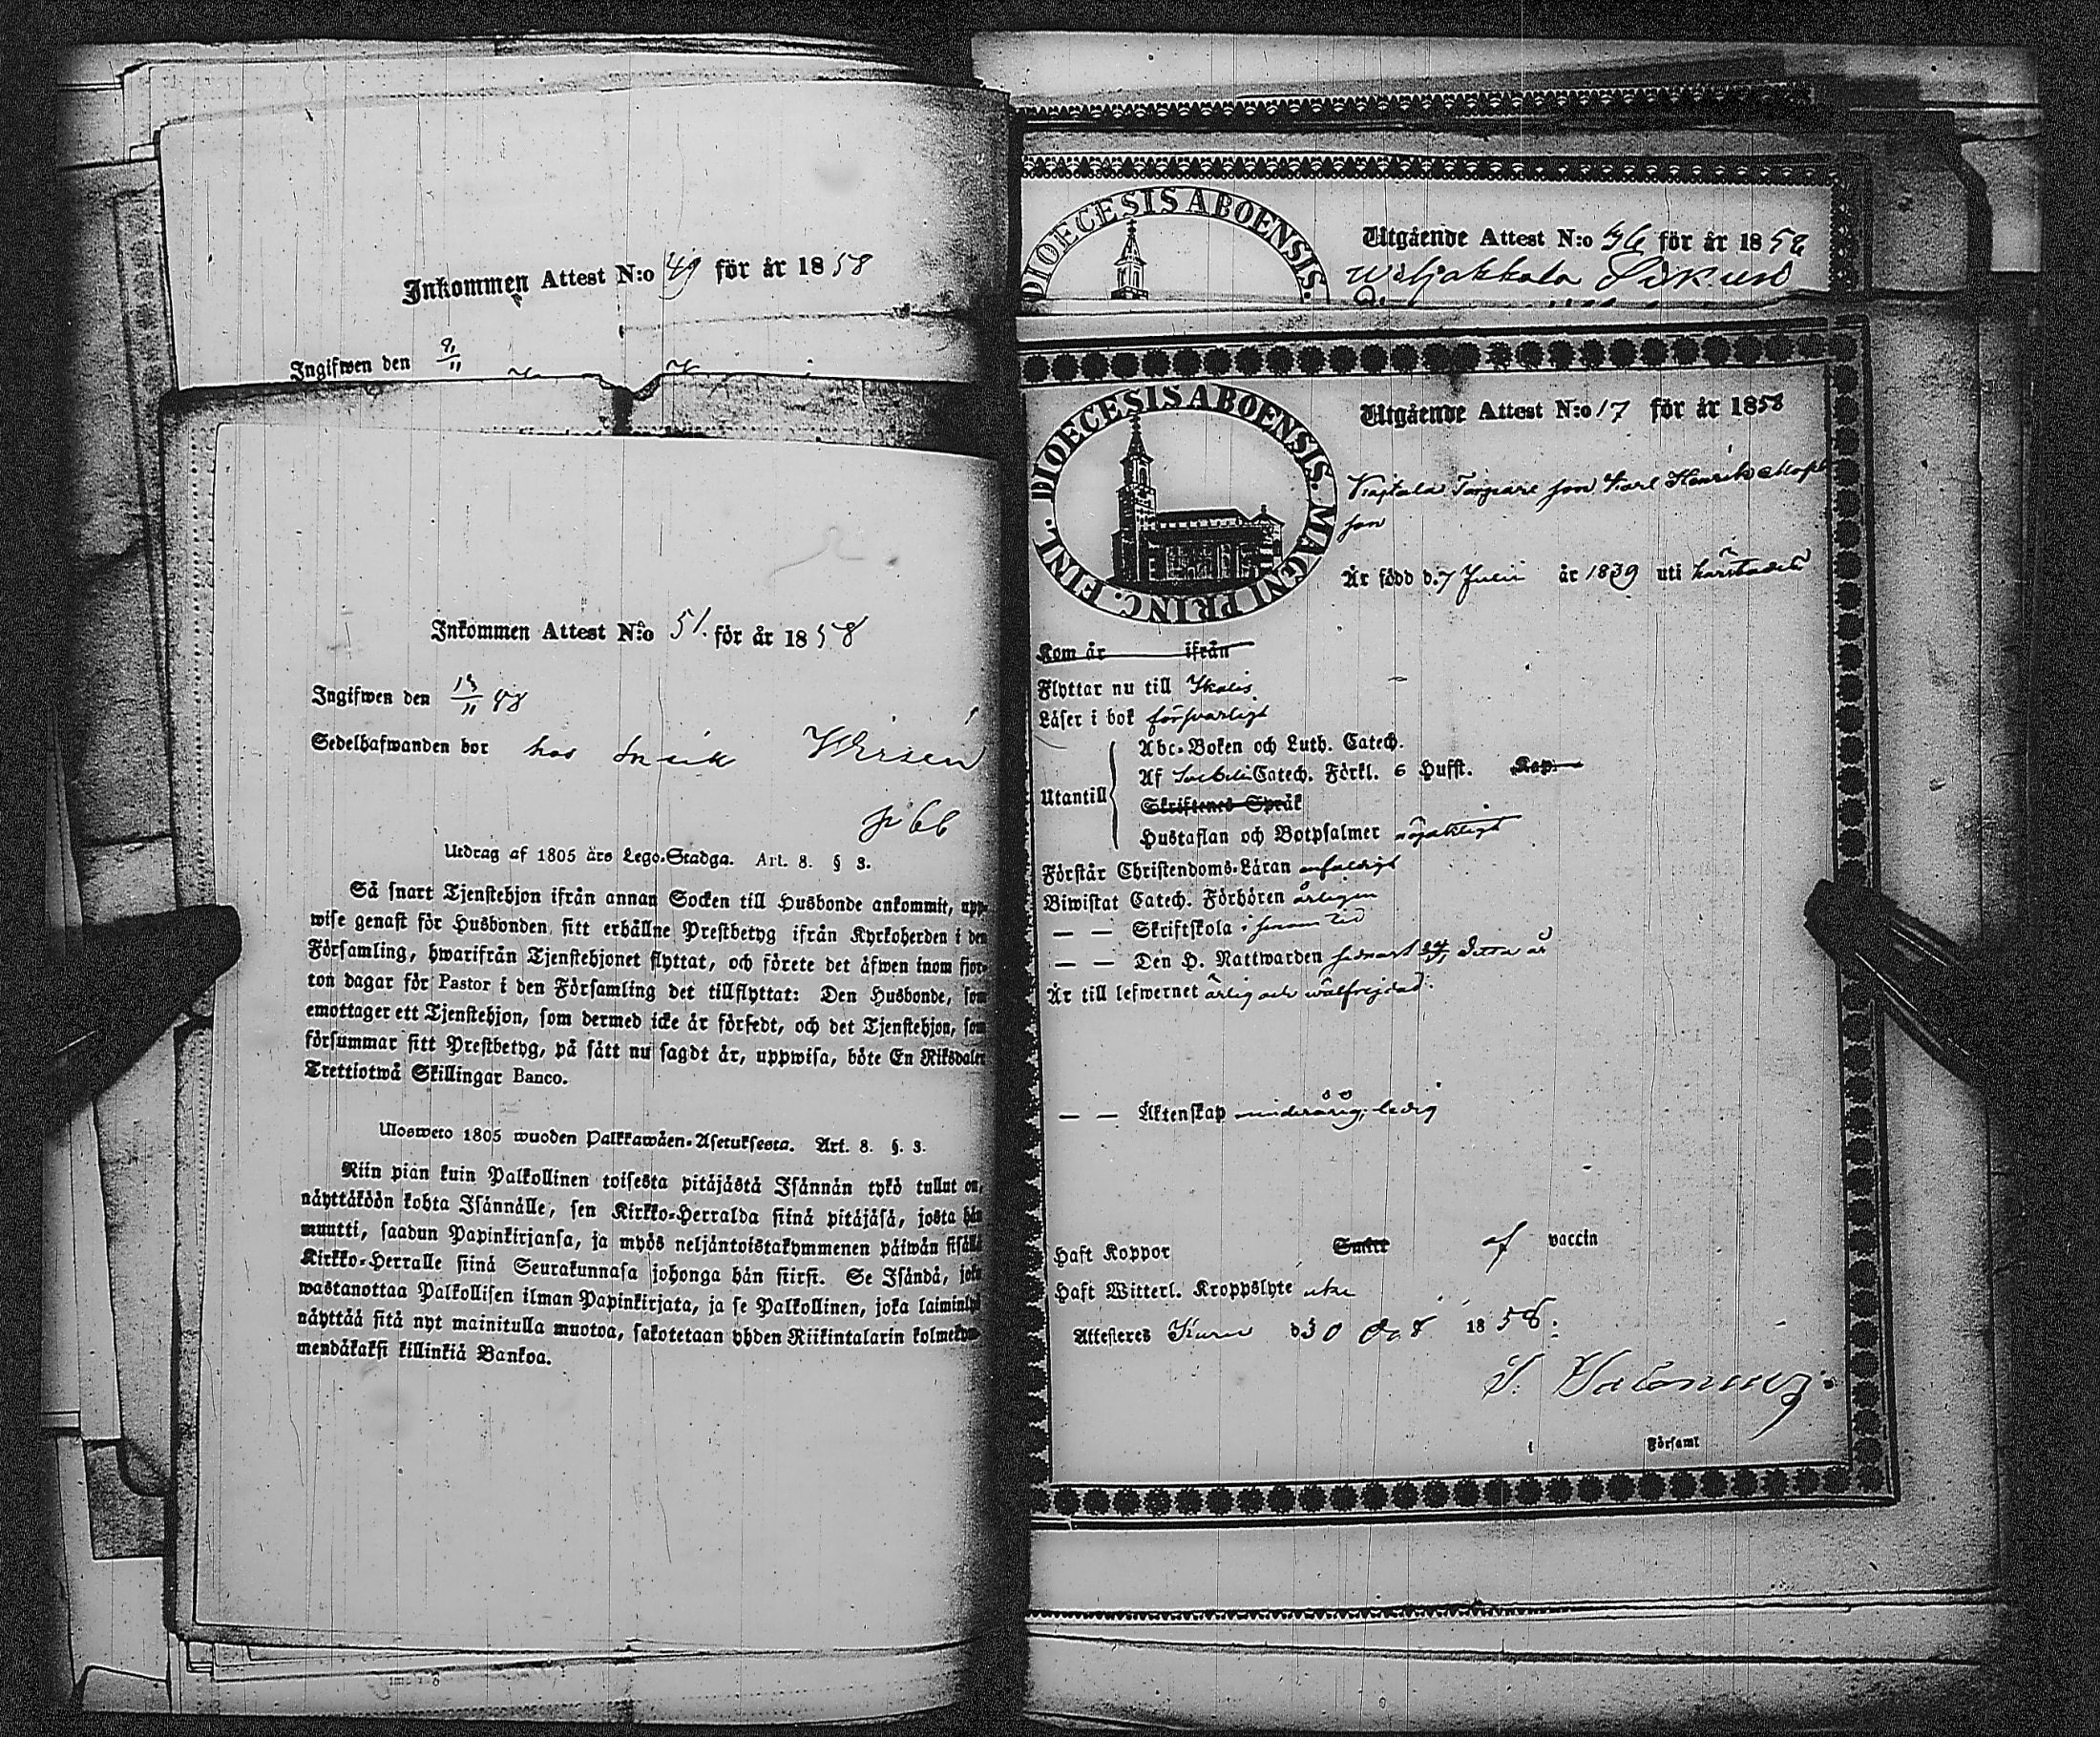 Inkommen Attest N:o 49 för år 1858
Ingifwen den 9/11
Inkommen Attest N:o 51. för år 1858
Ingifwen den 13/11 58
Sedelhafwanden bor hos
Utdrag af 1805 års Lego-Stadga. Art. 8. § 3.
Så snart Tjenstehjon ifrån annan Socken till Husbonde ankommit, upp-
wise genast för Husbonden sitt erhållne Prestbetyg ifrån Kyrkoherden i den
Församling, hwarifrån Tjenstehjonet flyttat, och förete det äfwen inom fjor-
ton dagar för Pastor i den Församling det tillflyttat: Den Husbonde, som
emottager ett Tjenstehjon, som dermed icke är försedt, och det Tjenstehjon, som
försummar sitt Prestbetyg, på sätt nu sagdt är, uppwisa, böte En Riksdaler
Trettiotwå Skillingar Banco.
Ulosweto 1805 wuoden Palkkawäen-Asetuksesta. Art. 8. §. 3.
Niin pian kuin Palkollinen toisesta pitäjästä Isännän tykö tullut on,
näyttäköön kohta Isännälle, sen Kirkko-Herralda siinä pitäjäsä, josta hän
muutti, saadun Papinkirjansa, ja myös neljäntoistakymmenen päiwän sisällä
Kirkko-Herralle siinä Seurakunnasa johonga hän siirsi. Se Isändä, joka
wastanottaa Palkollisen ilman Papinkirjata, ja se Palkollinen, joka laiminlyö
näyttää sitä nyt mainitulla muotoa, sakotetaan yhden Riikintalarin kolmekym-
mendäkaksi killinkiä Bankoa.
DIOECESIS ABOENSIS.
Utgående Attest N:o 56 för år 1858
DIOECESIS ABOENSIS. MAGNI PRINC. FINL.
Utgående Attest N:o 17 för år 1858
Torpare son Karl Henrik
son
Är född d. 7 Juli år 1839 uti härstädes
Kom år ifrån
Flyttar nu till Ikalis
Läser i bok försvarligt
Utantill
Abc-Boken och Luth. Catech.
Af Catech. Förkl. 6 Hufst. Kap.
Skriftenes Språk
Hustaflan och Botpsalmer nöjaktligt
Förstår Christendoms-Läran enfaldigt
Biwistat Catech. Förhören årligen
— — Skriftskola i sinom tid
— — Den H. Nattwarden sednast detta år
Är till lefwernet ärlig och wälfrejdad.
— — Äktenskap minderårig, ledig
Haft Koppor Smitt af vaccin
Haft Witterl. Kroppslyte icke
Attesteres d 30 Oct 1858.
i Församl